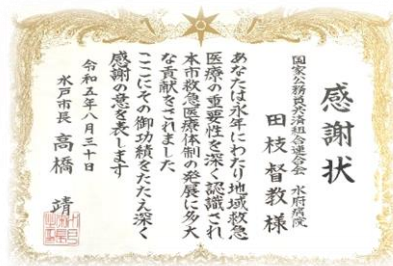 感謝状
国家公務員共済組合連合会 水府病院
田枝督教様
あなたは永年にわたり地域救急
医療の重要性を深く認識され
本市救急医療体制の発展に多大
な貢献をされました
ここにその御功績をたたえ深く
感謝の意を表します
令和五年八月三十日
水戸市長 高橋 靖